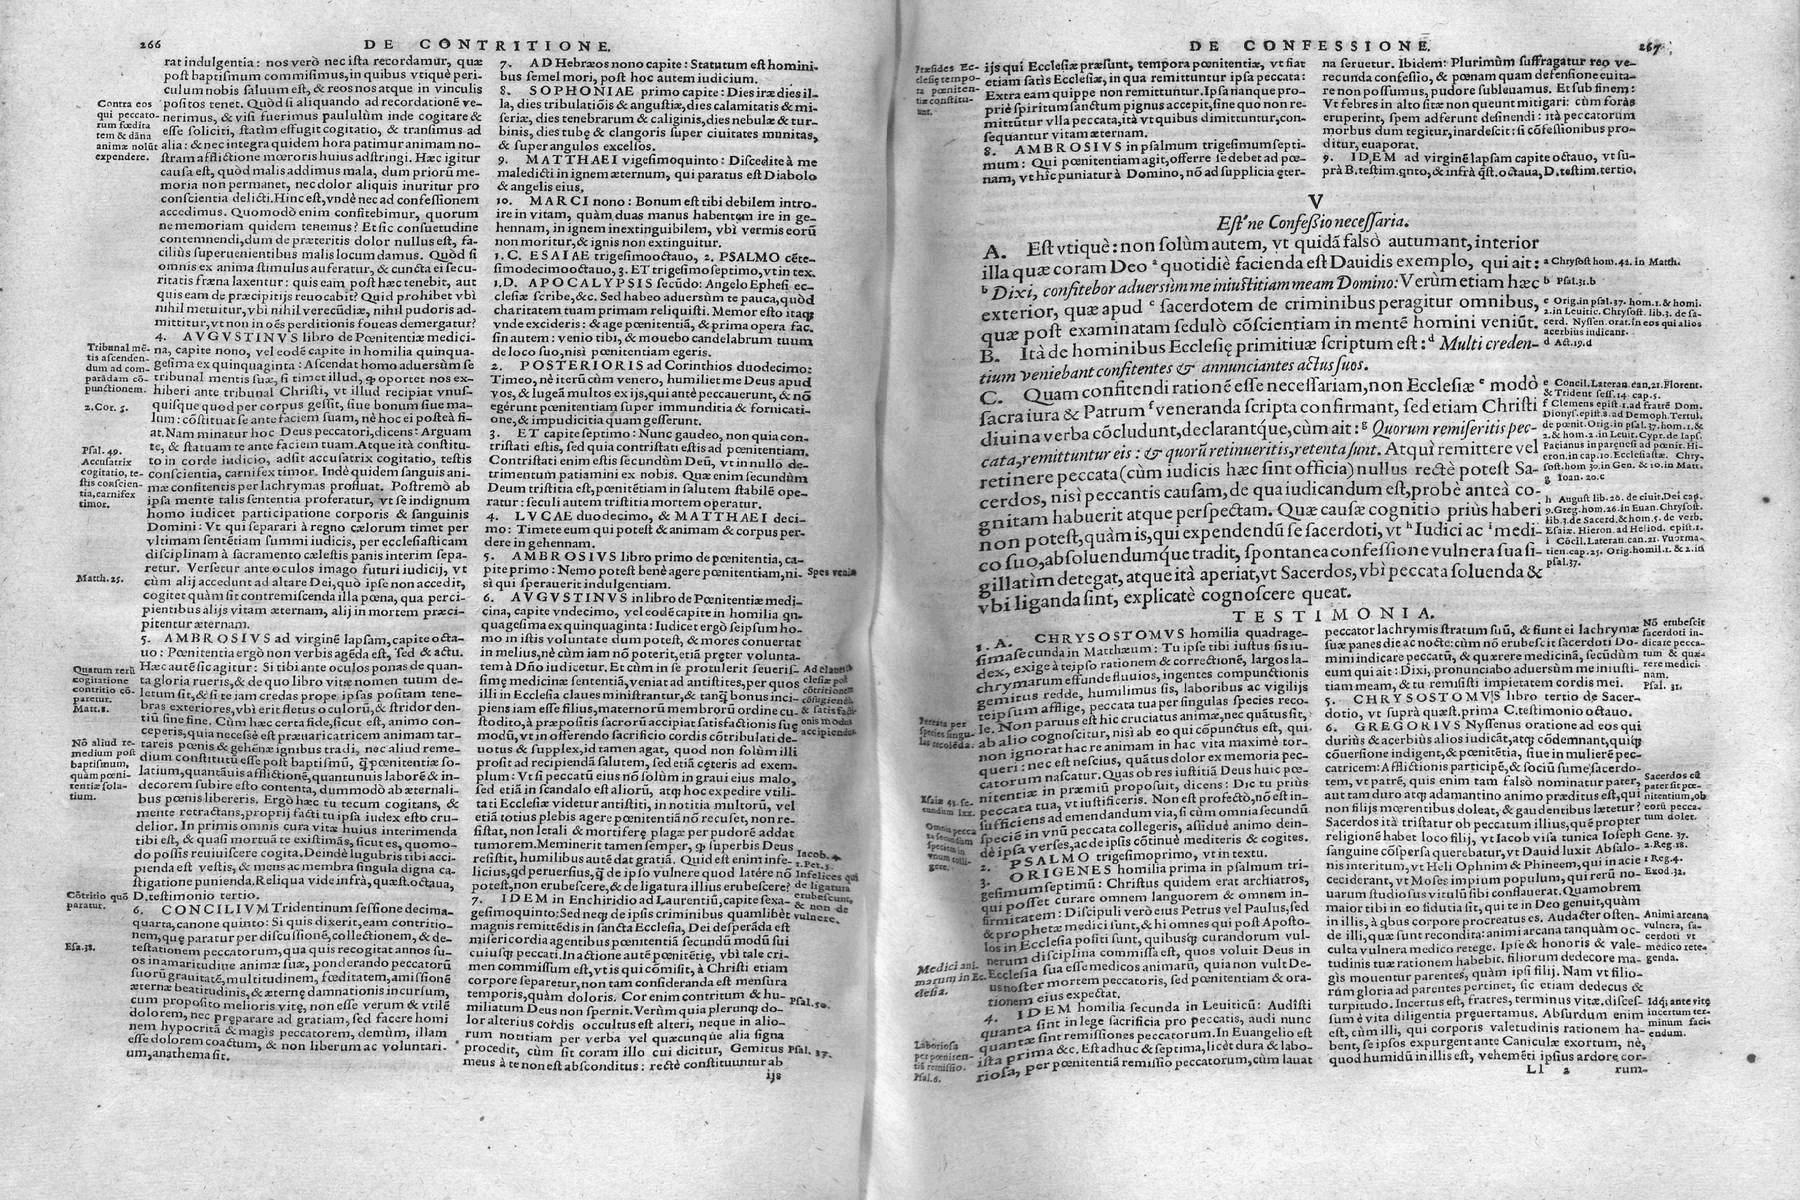 266
DE CONTRITIONE.
rat indulgentia: nos verò nec ista recordamur, quæ
post baptismum commisimus, in quibus vtiquè peri-
culum nobis saluum est, & reos nos atque in vinculis
positos tenet. Quòd si aliquando ad recordationē ve-
nerimus, & visi fuerimus paululùm inde cogitare &
esse soliciti, statìm effugit cogitatio, & transimus ad
alia: & nec integra quidem hora patimur animam no-
stram afflictione mœroris huius adstringi. Hæc igitur
causa est, quòd malis addimus mala, dum priorū me-
moria non permanet, nec dolor aliquis inuritur pro
conscientia delicti. Hinc est, vndè nec ad confessionem
accedimus. Quomodò enim confitebimur, quorum
ne memoriam quidem tenemus? Et sic consuetudine
contemnendi, dum de præteritis dolor nullus est, fa-
ciliùs superuenientibus malis locum damus. Quòd si
omnis ex anima stimulus auferatur, & cuncta ei secu-
ritatis fræna laxentur: quis eam post hæc tenebit, aut
quis eam de præcipitijs reuocabit? Quid prohibet vbì
nihil metuitur, vbì nihil verecūdiæ, nihil pudoris ad-
mittitur, vt non in oēs perditionis foueas demergatur?
4. AVGVSTINVS libro de Pœnitentiæ medici-
na, capite nono, vel eodē capite in homilia quinqua-
gesima ex quinquaginta: Ascendat homo aduersùm se
tribunal mentis suæ, si timet illud, ꝙ oportet nos ex-
hiberi ante tribunal Christi, vt illud recipiat vnus-
quisque quod per corpus gessit, siue bonum siue ma-
lum: cōstituat se ante faciem suam, nè hoc ei posteà fi-
at. Nam minatur hoc Deus peccatori, dicens: Arguam
te, & statuam te ante faciem tuam. Atque ità constitu-
to in corde iudicio, adsit accusatrix cogitatio, testis
conscientia, carnifex timor. Indè quidem sanguis ani-
mæ confitentis per lachrymas profluat. Postremò ab
ipsa mente talis sententia proferatur, vt se indignum
homo iudicet participatione corporis & sanguinis
Domini: Vt qui separari à regno cælorum timet per
vltimam sentētiam summi iudicis, per ecclesiasticam
disciplinam à sacramento cælestis panis interim sepa-
retur. Versetur ante oculos imago futuri iudicij, vt
cùm alij accedunt ad altare Dei, quò ipse non accedit,
cogitet quàm sit contremiscenda illa pœna, qua perci-
pientibus alijs vitam æternam, alij in mortem præci-
pitentur æternam.
5. AMBROSIVS ad virginē lapsam, capite octa-
uo: Pœnitentia ergò non verbis agēda est, sed & actu.
Hæc autē sic agitur: Si tibi ante oculos ponas de quan-
ta gloria rueris, & de quo libro vitæ nomen tuum de-
letum sit, & si te iam credas prope ipsas positam tene-
bras exteriores, vbì erit fletus oculorū, & stridor den-
tiū sine fine. Cùm hæc certa fide, sicut est, animo con-
ceperis, quia necessè est præuaricatricem animam tar-
tareis pœnis & gehēnæ ignibus tradi, nec aliud reme-
dium constitutū esse post baptismū, q̃ pœnitentiæ so-
latium, quantâuis afflictionē, quantunuis laborē & in-
decorem subire esto contenta, dummodò ab æternali-
bus pœnis libereris. Ergò hæc tu tecum cogitans, &
mente retractans, proprij facti tu ipsa iudex esto cru-
delior. In primis omnis cura vitæ huius interimenda
tibi est, & quasi mortuā te existimās, sicut es, quomo-
do possis reuiuiscere cogita. Deindè lugubris tibi acci-
pienda est vestis, & mens ac membra singula digna ca-
stigatione punienda. Reliqua vide infrà, quæst. octaua,
D. testimonio tertio.
6. CONCILIVM Tridentinum sessione decima-
quarta, canone quinto: Si quis dixerit, eam contritio-
nem, quę paratur per discussionē, collectionem, & de-
testationem peccatorum, qua quis recogitat annos su-
os in amaritudine animæ suæ, ponderando peccatorū
suorū grauitatē, multitudinem, fœditatem, amissionē
æternæ beatitudinis, & æternę damnationis incursum,
cum proposito melioris vitę, non esse verum & vtilē
dolorem, nec pręparare ad gratiam, sed facere homi
nem hypocritā & magìs peccatorem, demùm, illam
esse dolorem coactum, & non liberum ac voluntari-
um, anathema sit.
Contra eos
qui peccato-
rum fœdita
tem & dāna
animæ nolūt
expendere.
Tribunal mē-
tis ascenden-
dum ad com-
parādam cō-
punctionem.
2. Cor. 5.
Psal. 49.
Accusatrix
cogitatio, te-
stis conscien-
tia, carnifex
timor.
Matth. 25.
Quarum rerū
cogitatione
contritio cō-
paretur.
Matt. 8.
Nō aliud re-
medium post
baptismum,
quàm pœni-
tentiæ sola-
tium.
Cōtritio quō
paratur.
Esa. 38.
7. AD Hebræos nono capite: Statutum est homini-
bus semel mori, post hoc autem iudicium.
8. SOPHONIAE primo capite: Dies iræ dies il-
la, dies tribulatiōis & angustiæ, dies calamitatis & mi-
seriæ, dies tenebrarum & caliginis, dies nebulæ & tur-
binis, dies tubę & clangoris super ciuitates munitas,
& super angulos excelsos.
9. MATTHAEI vigesimoquinto: Discedite à me
maledicti in ignem æternum, qui paratus est Diabolo
& angelis eius.
10. MARCI nono: Bonum est tibi debilem intro-
ire in vitam, quàm duas manus habentem ire in ge-
hennam, in ignem inextinguibilem, vbì vermis eorū
non moritur, & ignis non extinguitur.
1. C. ESAIAE trigesimooctauo, 2. PSALMO cēte-
simodecimooctauo, 3. ET trigesimoseptimo, vt in tex.
1. D. APOCALYPSIS secūdo: Angelo Ephesi ec-
clesiæ scribe, &c. Sed habeo aduersùm te pauca, quòd
charitatem tuam primam reliquisti. Memor esto itaq;
vnde excideris: & age pœnitentiā, & prima opera fac.
sin autem: venio tibi, & mouebo candelabrum tuum
de loco suo, nisi pœnitentiam egeris.
2. POSTERIORIS ad Corinthios duodecimo:
Timeo, nè iterū cùm venero, humiliet me Deus apud
vos, & lugeā multos ex ijs, qui antè peccauerunt, & nō
egērunt pœnitentiam super immunditia & fornicati-
one, & impudicitia quam gesserunt.
3. ET capite septimo: Nunc gaudeo, non quia con-
tristati estis, sed quia contristati estis ad pœnitentiam.
Contristati enim estis secundùm Deū, vt in nullo de-
trimentum patiamini ex nobis. Quæ enim secundùm
Deum tristitia est, pœnitētiam in salutem stabilē ope-
ratur: seculi autem tristitia mortem operatur.
4. LVCAE duodecimo, & MATTHAEI deci-
mo: Timete eum qui potest & animam & corpus per-
dere in gehennam.
5. AMBROSIVS libro primo de pœnitentia, ca-
pite primo: Nemo potest benè agere pœnitentiam, ni-
sì qui sperauerit indulgentiam.
6. AVGVSTINVS in libro de Pœnitentiæ medi-
cina, capite vndecimo, vel eodē capite in homilia qn-
quagesima ex quinquaginta: Iudicet ergò seipsum ho-
mo in istis voluntate dum potest, & mores conuertat
in melius, nè cùm iam nō poterit, etiā pręter volunta-
tem à Dño iudicetur. Et cùm in se protulerit seueris-
simę medicinæ sententiā, veniat ad antistites, per quos
illi in Ecclesia claues ministrantur, & tanq̃ bonus inci-
piens iam esse filius, maternorū membrorū ordine cu-
stodito, à præpositis sacrorū accipiat satisfactionis suę
modū, vt in offerendo sacrificio cordis cōtribulati de-
uotus & supplex, id tamen agat, quod non solùm illi
prosit ad recipiendā salutem, sed etiā cęteris ad exem-
plum: Vt si peccatū eius nō solùm in graui eius malo,
sed etiā in scandalo est aliorū, atq; hoc expedire vtili-
tati Ecclesiæ videtur antistiti, in notitia multorū, vel
etiā totius plebis agere pœnitentiā nō recuset, non re-
sistat, non letali & mortiferę plagæ per pudorē addat
tumorem. Meminerit tamen semper, ꝙ superbis Deus
resistit, humilibus autē dat gratiā. Quid est enim infe-
licius, qd peruersius, q̃ de ipso vulnere quod latēre nō
potest, non erubescere, & de ligatura illius erubescere?
7. IDEM in Enchiridio ad Laurentiū, capite sexa-
gesimoquinto: Sed neq; de ipsis criminibus quamlibèt
magnis remittēdis in sancta Ecclesia, Dei desperāda est
misericordia agentibus pœnitentiā secundū modū sui
cuiusq; peccati. In actione autē pœnitētię, vbì tale cri-
men commissum est, vt is qui cōmisit, à Christi etiam
corpore separetur, non tam consideranda est mensura
temporis, quàm doloris. Cor enim contritum & hu-
miliatum Deus non spernit. Verùm quia plerunq; do-
lor alterius cordis occultus est alteri, neque in alio-
rum notitiam per verba vel quæcunque alia signa
procedit, cùm sit coram illo cui dicitur, Gemitus
meus à te non est absconditus: rectè constituuntur ab
ijs
Spes veniæ
Iacob. 4
1. Pet. 5.
Infelices qui
de ligatura
erubescunt,
& non de
vulnere.
Psal. 50.
Psal. 37.
DE CONFESSIONE.
267
ijs qui Ecclesiæ præsunt, tempora pœnitentiæ, vt fiat
etiam satìs Ecclesiæ, in qua remittuntur ipsa peccata:
Extra eam quippe non remittuntur. Ipsa nanque pro-
priè spiritum sanctum pignus accepit, sine quo non re-
mittūtur vlla peccata, ità vt quibus dimittuntur, con-
sequantur vitam æternam.
8. AMBROSIVS in psalmum trigesimumsepti-
mum: Qui pœnitentiam agit, offerre se debet ad pœ-
nam, vt hîc puniatur à Domino, nō ad supplicia ęter-
na seruetur. Ibidem: Plurimùm suffragatur reo ve-
recunda confessio, & pœnam quam defensione euita-
re non possumus, pudore subleuamus. Et sub finem:
Vt febres in alto sitæ non queunt mitigari: cùm foràs
eruperint, spem adferunt desinendi: ità peccatorum
morbus dum tegitur, inardescit: si cōfessionibus pro-
ditur, euaporat.
9. IDEM ad virginē lapsam capite octauo, vt su-
prà B. testim. qnto, & infrà q̃st. octaua, D. testim. tertio.
Præsides Ec-
clesię tempo-
ra pœniten-
tiæ constitu-
unt.
V
Est'ne Confessio necessaria.
A. Est vtiquè: non solùm autem, vt quidā falsò autumant, interior
illa quæ coram Deo a quotidiè facienda est Dauidis exemplo, qui ait:
b Dixi, confitebor aduersùm me iniustitiam meam Domino: Verùm etiam hæc
exterior, quæ apud c sacerdotem de criminibus peragitur omnibus,
quæ post examinatam sedulò cōscientiam in mentē homini veniūt.
B. Ità de hominibus Ecclesię primitiuæ scriptum est: d Multi creden-
tium veniebant confitentes & annunciantes actus suos.
C. Quam confitendi rationē esse necessariam, non Ecclesiæ e modò
sacra iura & Patrum f veneranda scripta confirmant, sed etiam Christi
diuina verba cōcludunt, declarantq́ue, cùm ait: g Quorum remiseritis pec-
cata, remittuntur eis: & quorū retinueritis, retenta sunt. Atqui remittere vel
retinere peccata (cùm iudicis hæc sint officia) nullus rectè potest Sa-
cerdos, nisì peccantis causam, de qua iudicandum est, probè anteà co-
gnitam habuerit atque perspectam. Quæ causæ cognitio priùs haberi
non potest, quàm is, qui expendendū se sacerdoti, vt h Iudici ac i medi-
co suo, absoluendumq́ue tradit, spontanea confessione vulnera sua si-
gillatìm detegat, atque ità aperiat, vt Sacerdos, vbì peccata soluenda &
vbi liganda sint, explicatè cognoscere queat.
a Chrysost hom. 42. in Matth.
b Psal. 31. b
c Orig. in psal. 37. hom. 1. & homi.
2. in Leuitic. Chrysost. lib. 3. de sa-
cerd. Nyssen. orat. in eos qui alios
acerbius iudicant.
d Act. 19. d
e Concil. Lateran. can. 21. Florent.
& Trident sess. 14. cap. 5.
f Clemens epist. 1. ad fratrē Dom.
Dionys. epist. 8. ad Demoph. Tertul.
de pœnit. Orig. in psal. 37. hom. 1. &
2. & hom. 2. in Leuit. Cypr. de laps.
Patianus in parænesi ad pœnit. Hi-
eron. in cap. 10. Ecclesiastæ. Chry-
sost. hom. 30. in Gen. & 10. in Matt.
g Ioan. 20. c
h August lib. 20. de ciuit. Dei cap.
9. Greg. hom. 26. in Euan. Chrysost.
lib. 3. de Sacerd. & hom. 5. de verb.
Esaiæ. Hieron. ad Heliod. epist. 1.
i Cōcil. Lateran. can. 21. Vuorma-
tien. cap. 25. Orig. homil. 1. & 2. in
psal. 37.
TESTIMONIA.
1. A. CHRYSOSTOMVS homilia quadrage-
simasecunda in Matthæum: Tu ipse tibi iustus sis iu-
dex, exige à teipso rationem & correctionē, largos la-
chrymarum effunde fluuios, ingentes compunctionis
gemitus redde, humilimus sis, laboribus ac vigilijs
teipsum afflige, peccata tua per singulas species reco-
le. Non paruus est hic cruciatus animæ, nec quātus sit,
ab alio cognoscitur, nisì ab eo qui cōpunctus est, qui
non ignorat hac re animam in hac vita maximè tor-
queri: nec est nescius, quātus dolor ex memoria pec-
catorum nascatur. Quas ob res iustitiā Deus huic pœ-
nitentiæ in præmiū proposuit, dicens: Dic tu priùs
peccata tua, vt iustificeris. Non est profectò, nō est in-
sufficiens ad emendandum via, si cùm omnia secundū
speciē in vnū peccata collegeris, assiduè animo dein-
dè ipsa verses, ac de ipsis cōtinuè mediteris & cogites.
2. PSALMO trigesimoprimo, vt in textu.
3. ORIGENES homilia prima in psalmum tri-
gesimumseptimū: Christus quidem erat archiatros,
qui posset curare omnem languorem & omnem in-
firmitatem: Discipuli verò eius Petrus vel Paulus, sed
& prophetæ medici sunt, & hi omnes qui post Aposto-
los in Ecclesia positi sunt, quibusq; curandorum vul-
nerum disciplina commissa est, quos voluit Deus in
Ecclesia sua esse medicos animarū, quia non vult De-
us noster mortem peccatoris, sed pœnitentiam & ora-
tionem eius expectat.
4. IDEM homilia secunda in Leuiticū: Audîsti
quanta sint in lege sacrificia pro peccatis, audi nunc
quantæ sint remissiones peccatorum. In Euangelio est
ista prima &c. Est adhuc & septima, licèt dura & labo-
riosa, per pœnitentiā remissio peccatorum, cùm lauat
Peccata per
species singu-
las recolēda.
Esaiæ 43. se-
cundum lxx.
Omnia pecca
ta secundùm
speciem in
vnum colli-
gere.
Medici ani-
marum in Ec-
clesia.
Laboriosa
per pœniten-
tiā remissio.
Psal. 6.
peccator lachrymis stratum suū, & fiunt ei lachrymæ
suæ panes die ac nocte: cùm nō erubescit sacerdoti Do-
mini indicare peccatū, & quærere medicinā, secūdùm
eum qui ait: Dixi, pronunciabo aduersùm me iniusti-
tiam meam, & tu remisisti impietatem cordis mei.
5. CHRYSOSTOMVS libro tertio de Sacer-
dotio, vt suprà quæst. prima C. testimonio octauo.
6. GREGORIVS Nyssenus oratione ad eos qui
duriùs & acerbiùs alios iudicāt, atq; cōdemnant, quiq;
cōuersione indigent, & pœnitētia, siue in muliere pec-
catricem: Afflictionis participē, & sociū sume sacerdo-
tem, vt patrē, quis enim tam falsò nominatur pater,
aut tam duro atq; adamantino animo præditus est, qui
non filijs mœrentibus doleat, & gaudentibus lætetur?
Sacerdos ità tristatur ob peccatum illius, què propter
religionē habet loco filij, vt Iacob visa tunica Ioseph
sanguine cōspersa querebatur, vt Dauid luxit Absalo-
nis interitum, vt Heli Ophnim & Phineem, qui in acie
ceciderant, vt Moses impium populum, qui rerū no-
uarum studiosus vitulū sibi conflauerat. Quamobrem
maior tibi in eo fiducia sit, qui te in Deo genuit, quàm
in illis, à qbus corpore procreatus es. Audacter osten-
de illi, quæ sunt recondita: animi arcana tanquàm oc-
culta vulnera medico retege. Ipse & honoris & vale-
tudinis tuæ rationem habebit. filiorum dedecore ma-
gìs mouentur parentes, quàm ipsi filij. Nam vt filio-
rum gloria ad parentes pertinet, sic etiam dedecus &
turpitudo. Incertus est, fratres, terminus vitæ. disces-
sum è vita diligentia prǫuertamus. Absurdum enim
est, cùm illi, qui corporis valetudinis rationem ha-
bent, se ipsos expurgent ante Caniculæ exortum, nè,
quod humidū in illis est, vehemēti ipsius ardore cor-
Ll 2 rum-
Nō erubescit
sacerdoti in-
dicare pecca-
tum & quæ-
rere medici-
nam.
Psal. 31.
Sacerdos cū
pater sit pœ-
nitentium, ob
eorū pecca-
tum dolet.
Gene. 37.
2. Reg. 18.
1 Reg. 4.
Exod. 32.
Animi arcana
vulnera, sa-
cerdoti vt
medico rete-
genda.
Idq; ante vitę
incertum ter-
minum faci-
endum.